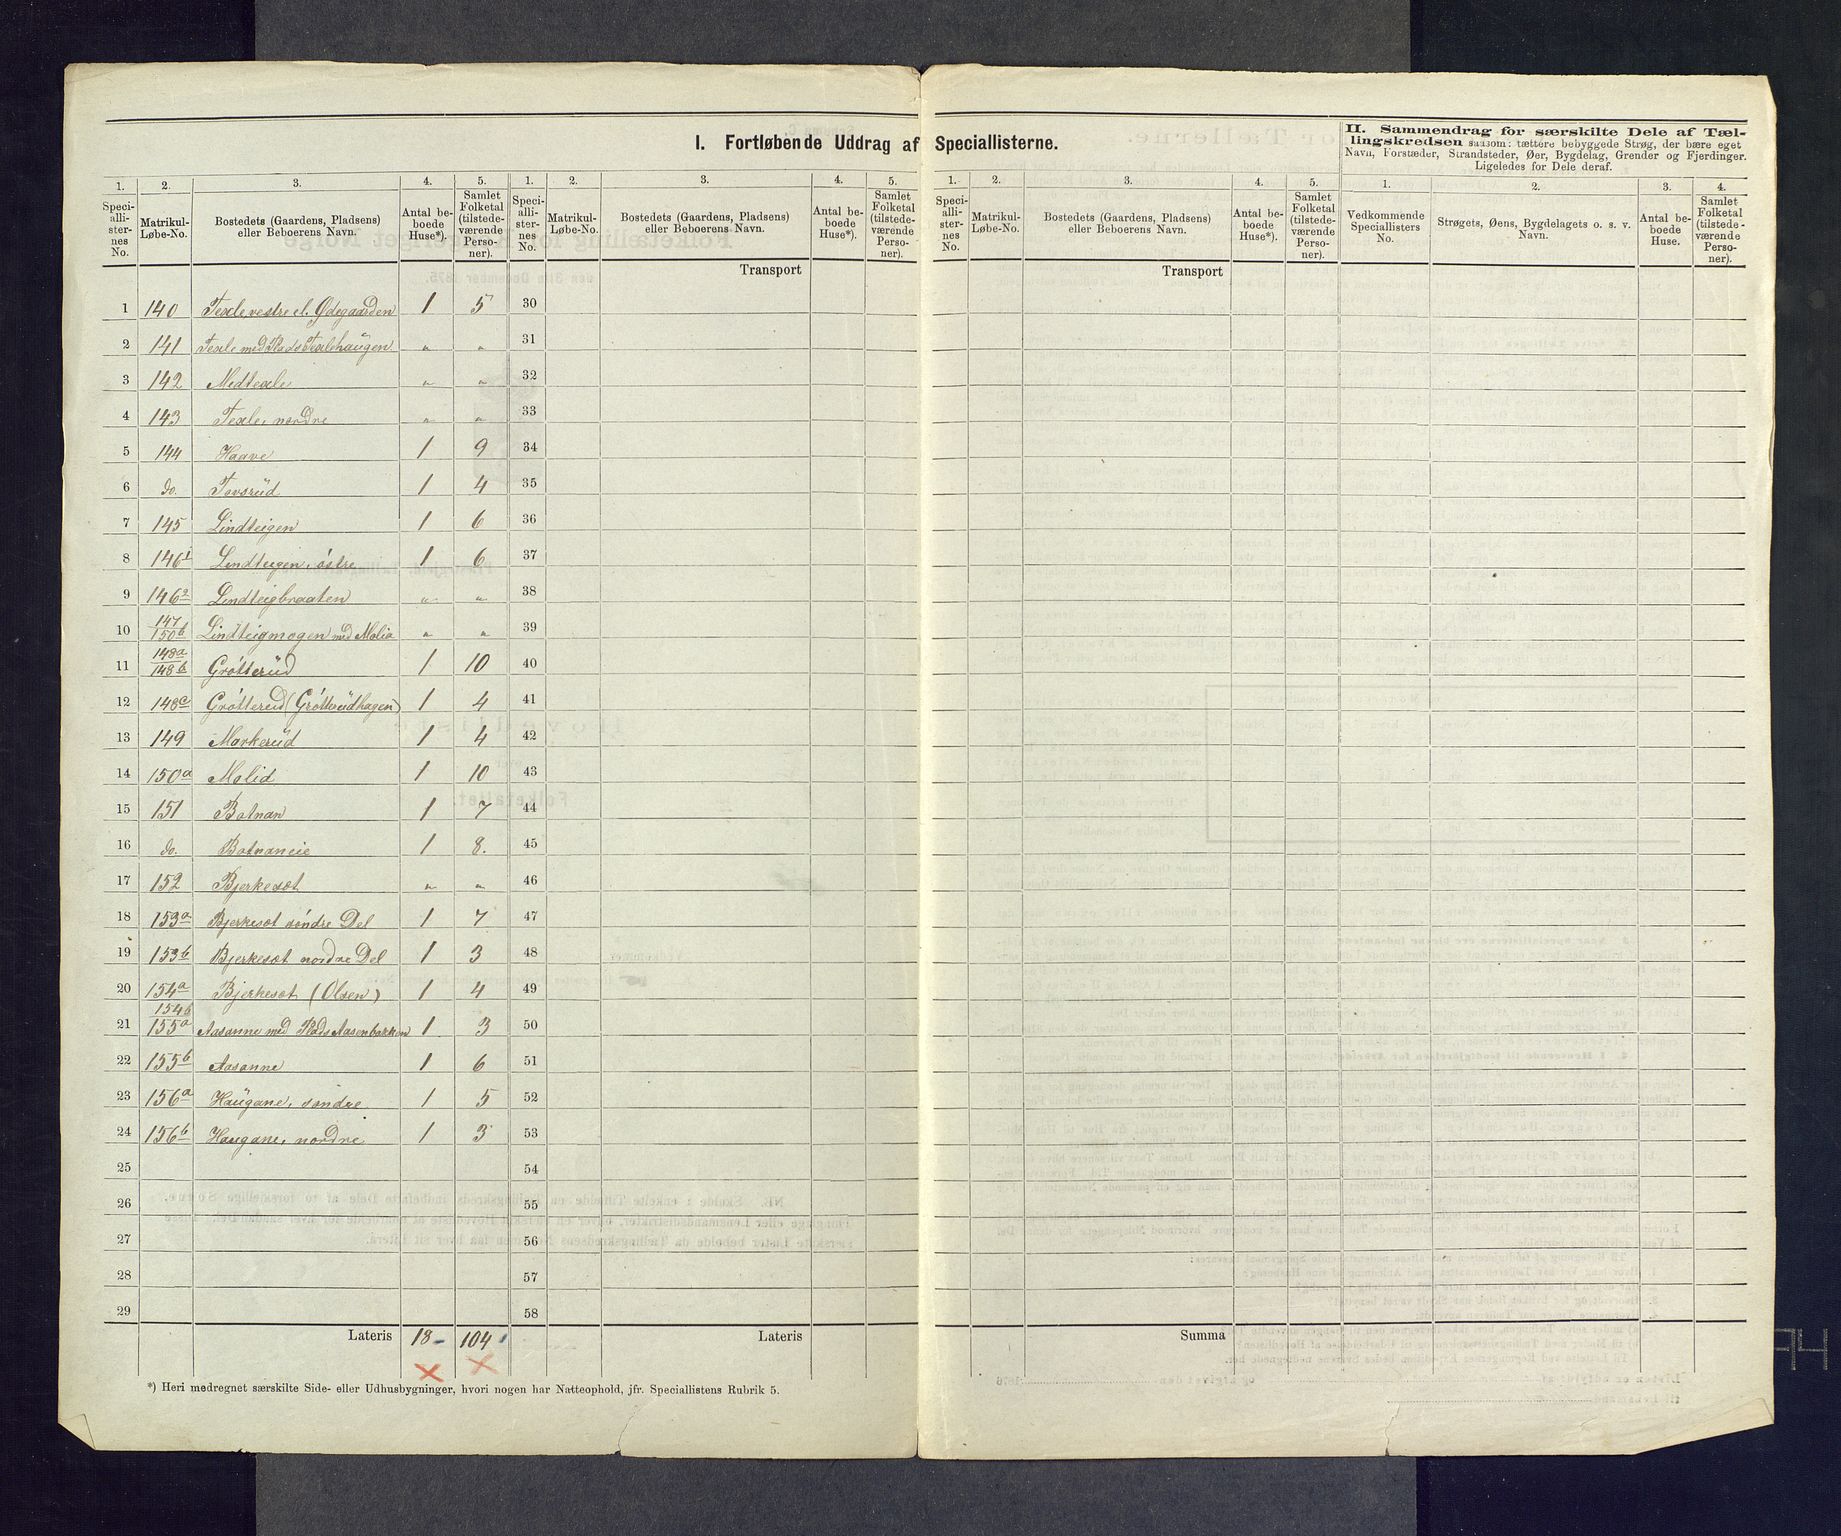 I. Fortløbende Uddrag af Speciallisterne.
II. Sammendrag for særskilte Dele af Tæl-
lingskredsen saasom: tættere bebyggede Strøg, der bære eget
Navn, Forstæder, Strandsteder, Øer, Bygdelag, Grender og Fjerdinger.
Ligeledes for Dele deraf.
1. 2. 3. 4. 5. 1. 2. 3. 4. 5. 1. 2. 3. 4. 5. 1. 2. 3. 4.
Speci-allister-nes No. Matrikul-Løbe-No. Bostedets (Gaardens, Pladsens) eller Beboerens Navn. Antal be-boede Huse*). Samlet Folketal (tilstede-værende Perso-ner).
Speci-allister-nes No. Matrikul-Løbe-No. Bostedets (Gaardens, Pladsens) eller Beboerens Navn. Antal be-boede Huse*). Samlet Folketal (tilstede-værende Perso-ner).
Speci-allister-nes No. Matrikul-Løbe-No. Bostedets (Gaardens, Pladsens) eller Beboerens Navn. Antal be-boede Huse*). Samlet Folketal (tilstede-værende Perso-ner).
Vedkommende Speciallisters No. Strøgets, Øens, Bygdelagets o. s. v. Navn. Antal be-boede Huse. Samlet Folketal (tilstede-værende Perso-ner).
Transport Transport
1 140 Texle vestre el. Ødegaarden 1 5 30
2 141 Texle med Plads Texlehaugen " " 31
3 142 Medtexle " " 32
4 143 Texle, nordre " " 33
5 144 Haave 1 9 34
6 do. Tovsrud 1 4 35
7 145 Lindteigen 1 6 36
8 146 1 Lindteigen, østre 1 6 37
9 146 2 Lindteigbraaten " " 38
10 147 150b Lindteigmogen med Molia " " 39
11 148a 148b Grötterud 1 10 40
12 148c Grötterud (Grötterudhagen) 1 4 41
13 149 Markerud 1 4 42
14 150a Molid 1 10 43
15 151 Botnan 1 7 44
16 do. Botnaneie 1 8. 45
17 152 Bjerkesæt " " 46
18 153a Bjerkesæt søndre Del 1 7 47
19 153b Bjerkesæt nordre Del 1 3 48
20 154a Bjerkesæt (Olsen) 1 4 49
21 154b 155a Aasanne med Plads Aasenbakken 1 3 50
22 155b Aasanne 1 6 51
23 156a Haugane, søndre 1 5 52
24 156b Haugane, nordre 1 3 53
25 54
26 55
27 56
28 57
29 58
Lateris 18 104 Lateris Summa
*) Heri medregnet særskilte Side- eller Udhusbygninger, hvori nogen har Natteophold, jfr. Speciallistens Rubrik 5.